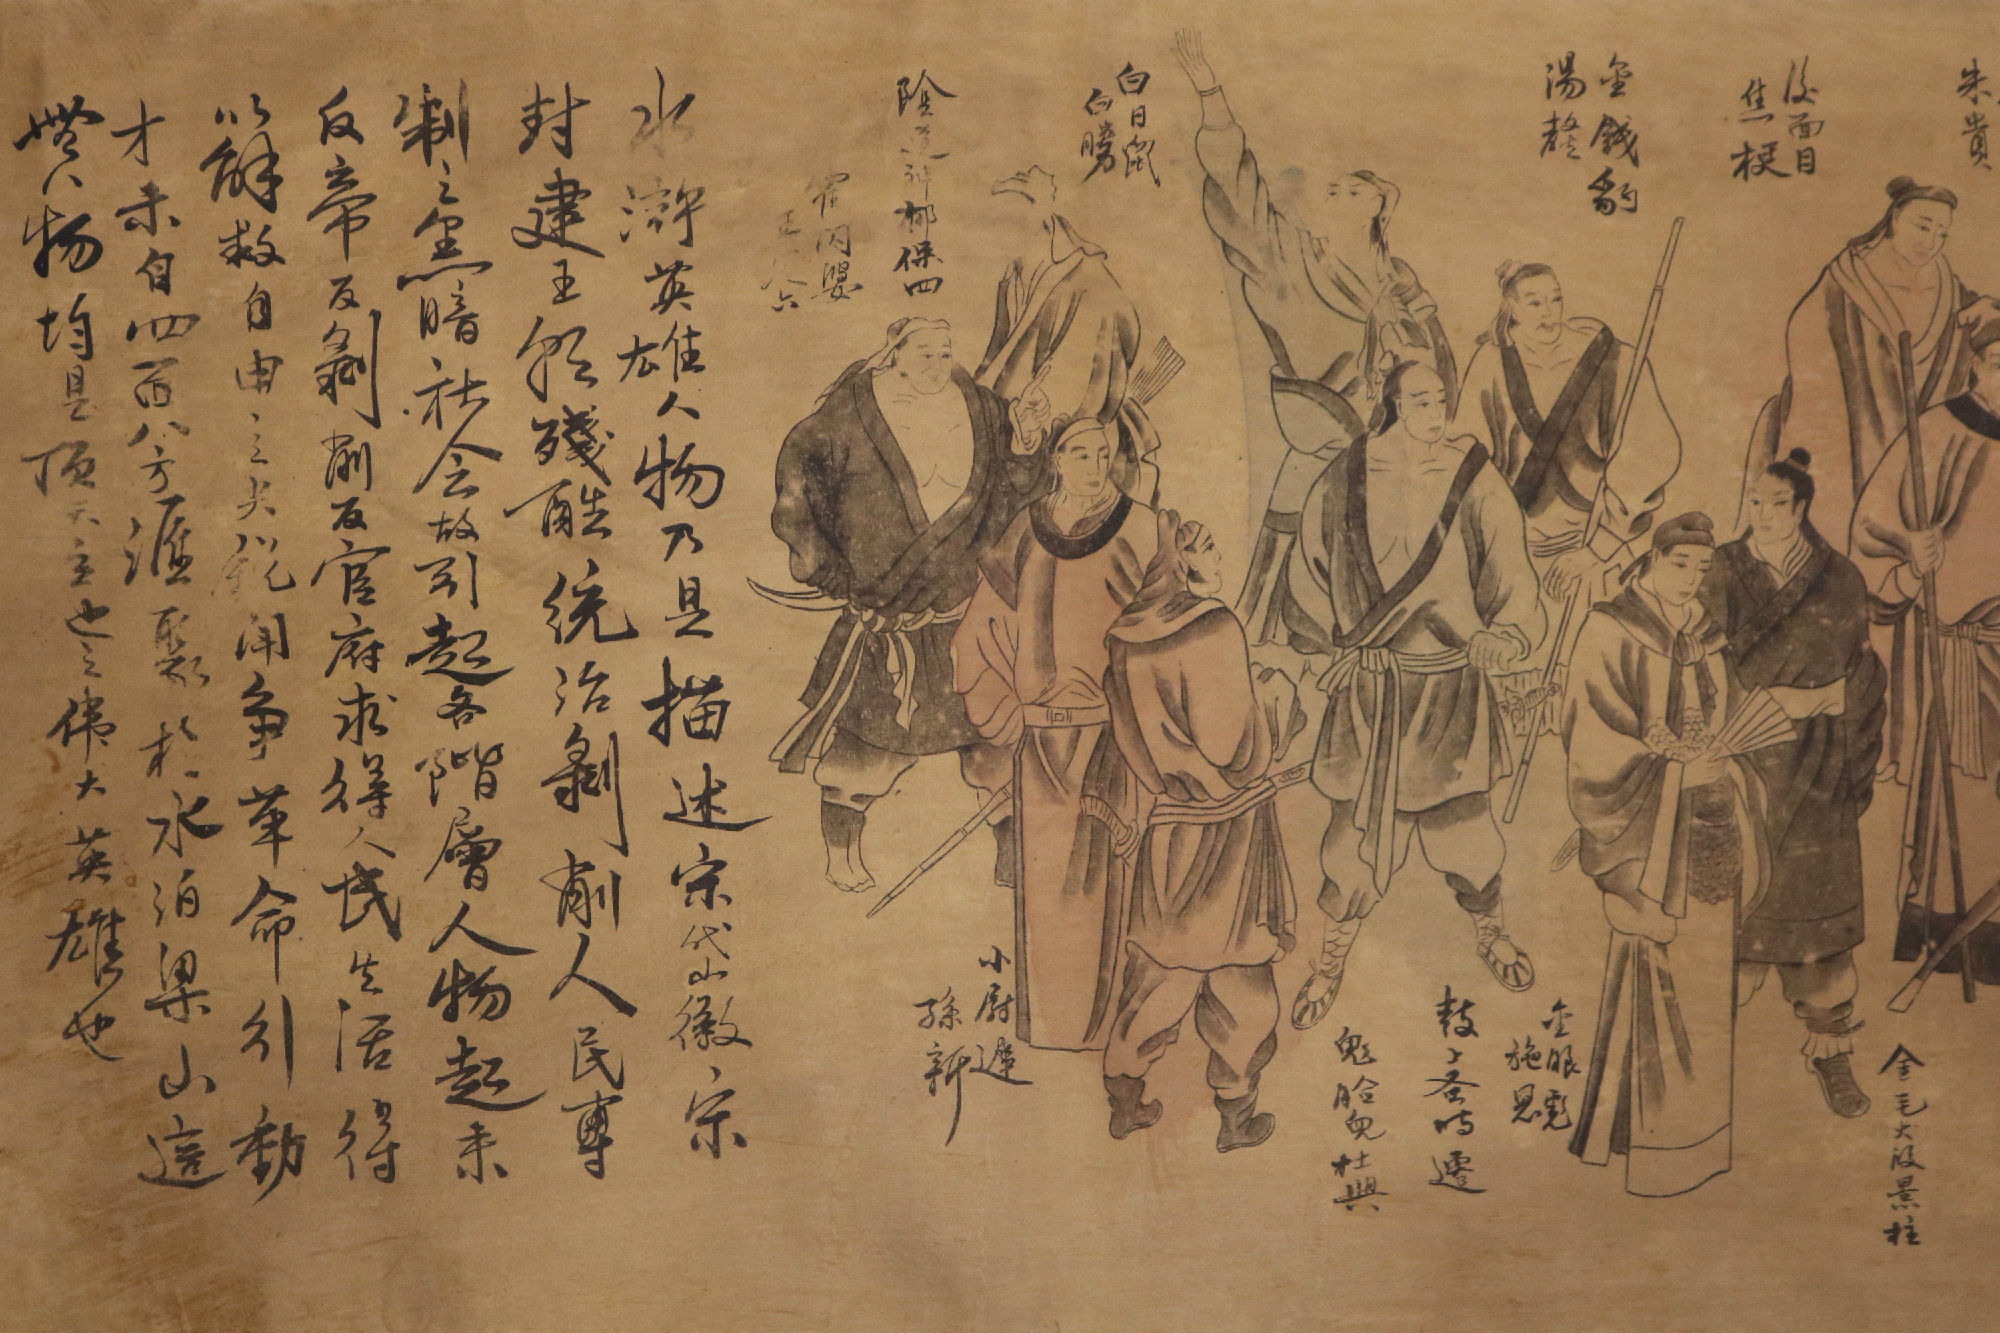 朱貴
没面目
焦梗
金錢豹
湯隆
白日鼠
白勝
險道神郁保四
霍闪婆
王六
金毛犬段景柱
金眼彪
施恩
鼓上蚤时遷
鬼臉兒杜興
小尉遲
孫新
水滸英雄人物乃是描述宋代山徽宗
封建王朝殘酷统治剝削人民專
制之黑暗社会故引起各階層人物起来
反帝反剝削反官府求得人民生活得
以解救自由之尖锐鬥争革命引動
才来自四面八方滙聚於水泊梁山這
些人物均是顶天立也之偉大英雄也